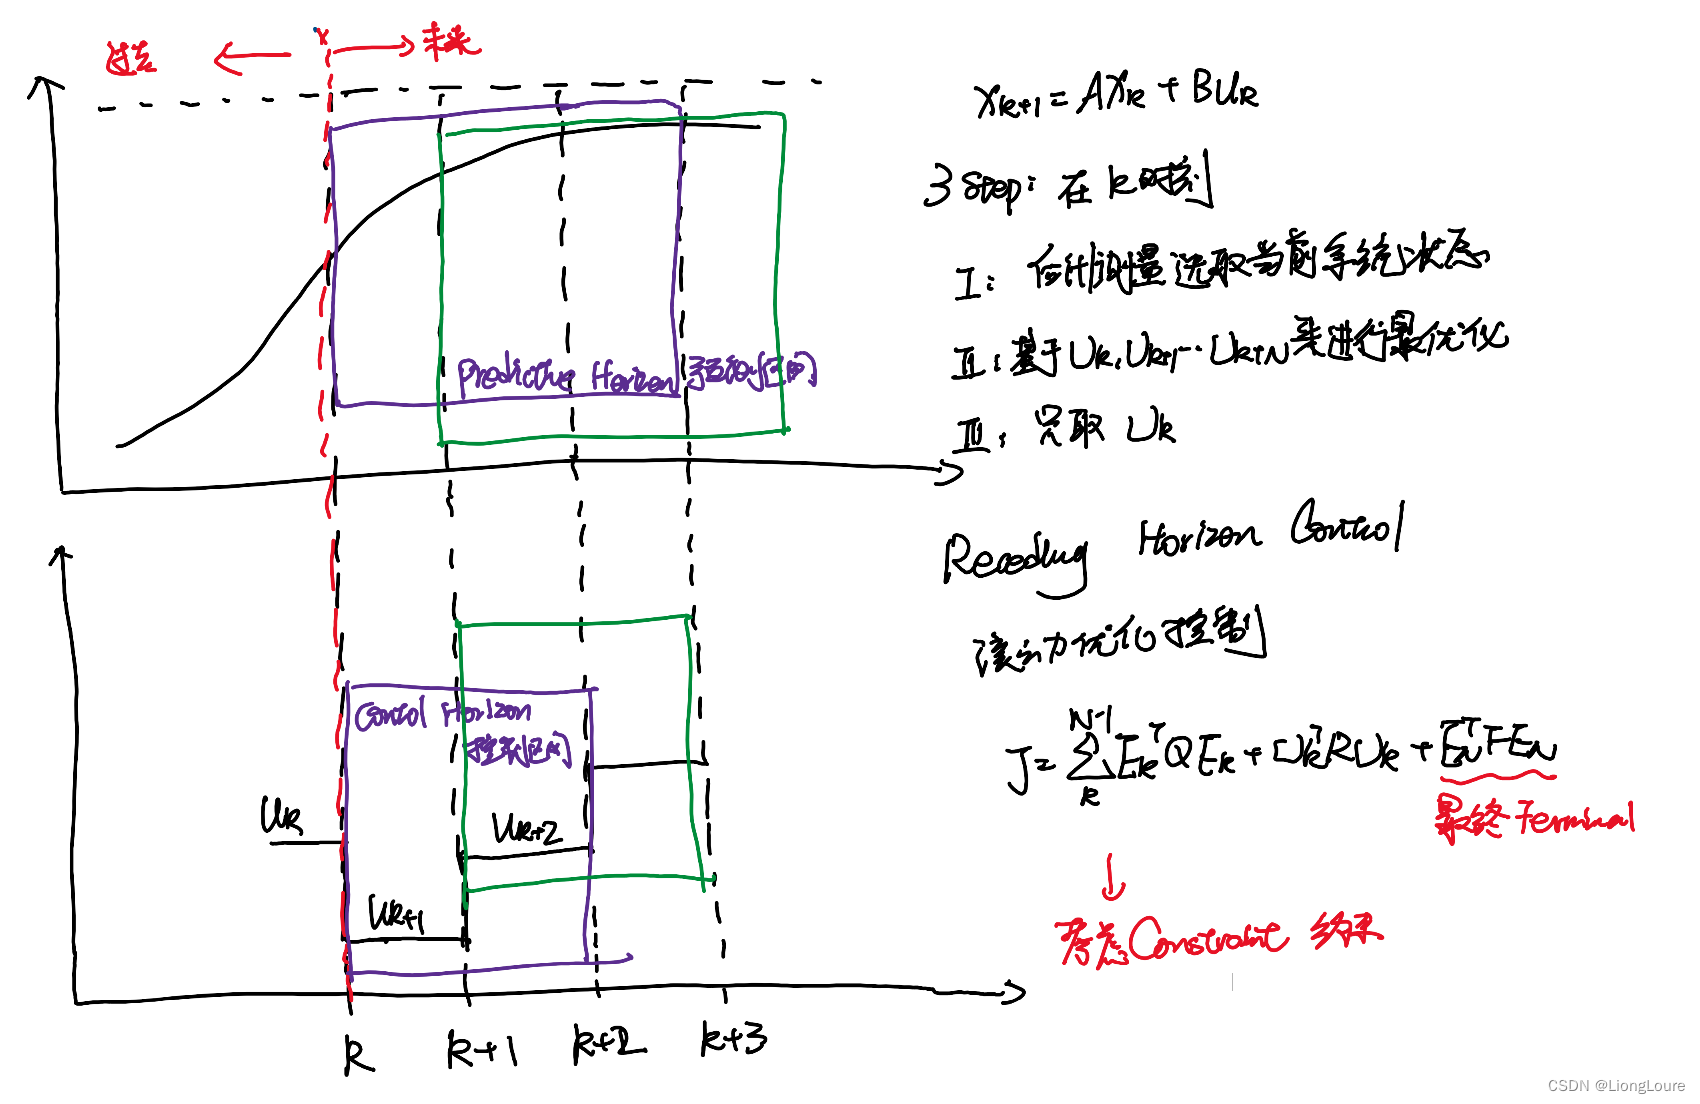 过去
未来
Predictive Horizon 预测区间
Control Horizon
控制区间
Uk
Uk+1
Uk+2
k k+1 k+2 k+3
Xk+1 = AXk + BUk
3 Step: 在 k 时刻
I: 估计测量选取当前系统状态
II: 基于 Uk, Uk+1 ... Uk+N 来进行最优化
III: 只取 Uk
Receding Horizon Control
滚动优化控制
J = ∑ₖᴺ⁻¹ EkᵀQEk + UkᵀRUk + ENᵀFEN
最终 Terminal
考虑 Constraint 约束
CSDN @LiongLoure